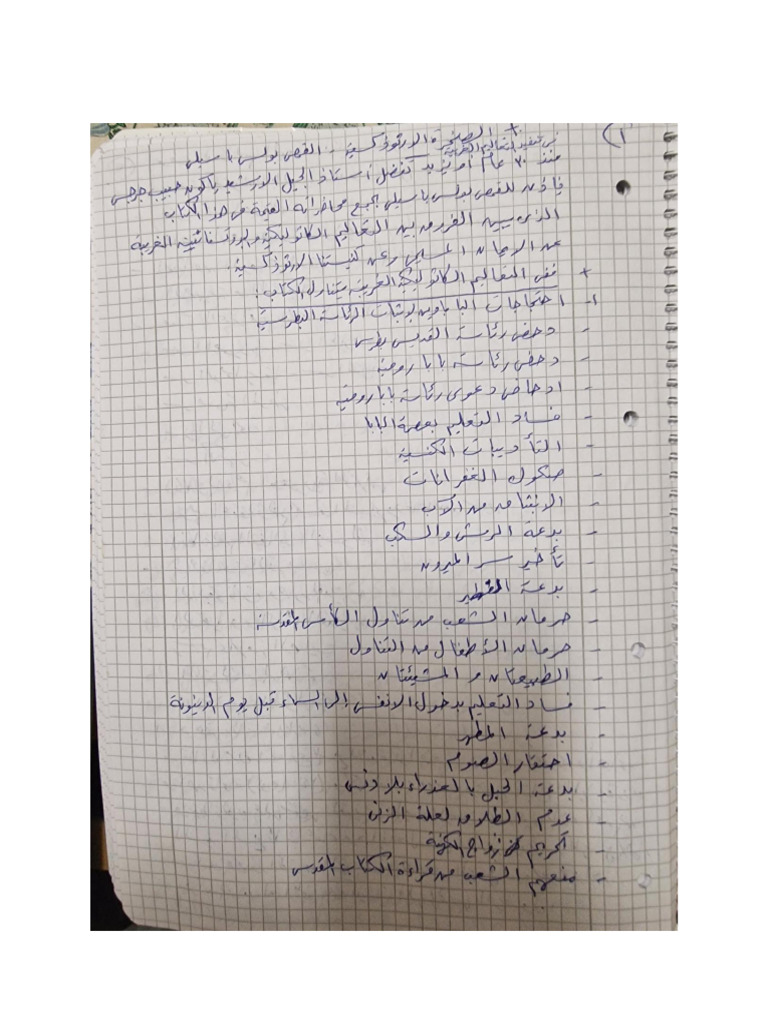 (١
+ الصخرة الارثوذكسية - القمص بولس باسيلى
فى تفنيد التعاليم الغربية
منذ ٧٠ عام أو يزيد تفضل أستاذ الجيل الارشيدياكون حبيب جرجس
فإذن للقمص بولس باسيلى بجمع محاضراته القيمة فى هذا الكتاب
الذى يبين الفروق بين التعاليم الكاثوليكية والبروتستانتية الغريبة
عن الايمان المسيحى وعن كنيستنا الارثوذكسية.
+ ففى التعاليم الكاثوليكية الغريبة يتناول الكتاب:
١- احتجاجات الباباويين لإثبات الرئاسة البطرسية:
- دحض رئاسة القديس بطرس
- دحض رئاسة بابا رومية
- ادحاض دعوى رئاسة بابا رومية
- فساد التعليم بعصمة البابا
- التأديبات الكنسية
- صكوك الغفرانات
- الانبثاق من الآب
- بدعة الرش والسكب
- تأخير سر الميرون
- بدعة الفطير
- حرمان الشعب من تناول الكأس المقدسة
- حرمان الأطفال من التناول
- الطبيعتان و المشيئتان
- فساد التعليم بدخول الانفس إلى السماء قبل يوم الدينونة
- بدعة المطهر
- احتقار الصوم
- بدعة الحبل بالعذراء بلا دنس
- عدم الطلاق لعلة الزنى
- تحريم زواج الكهنة
- منعهم الشعب من قراءة الكتاب المقدس